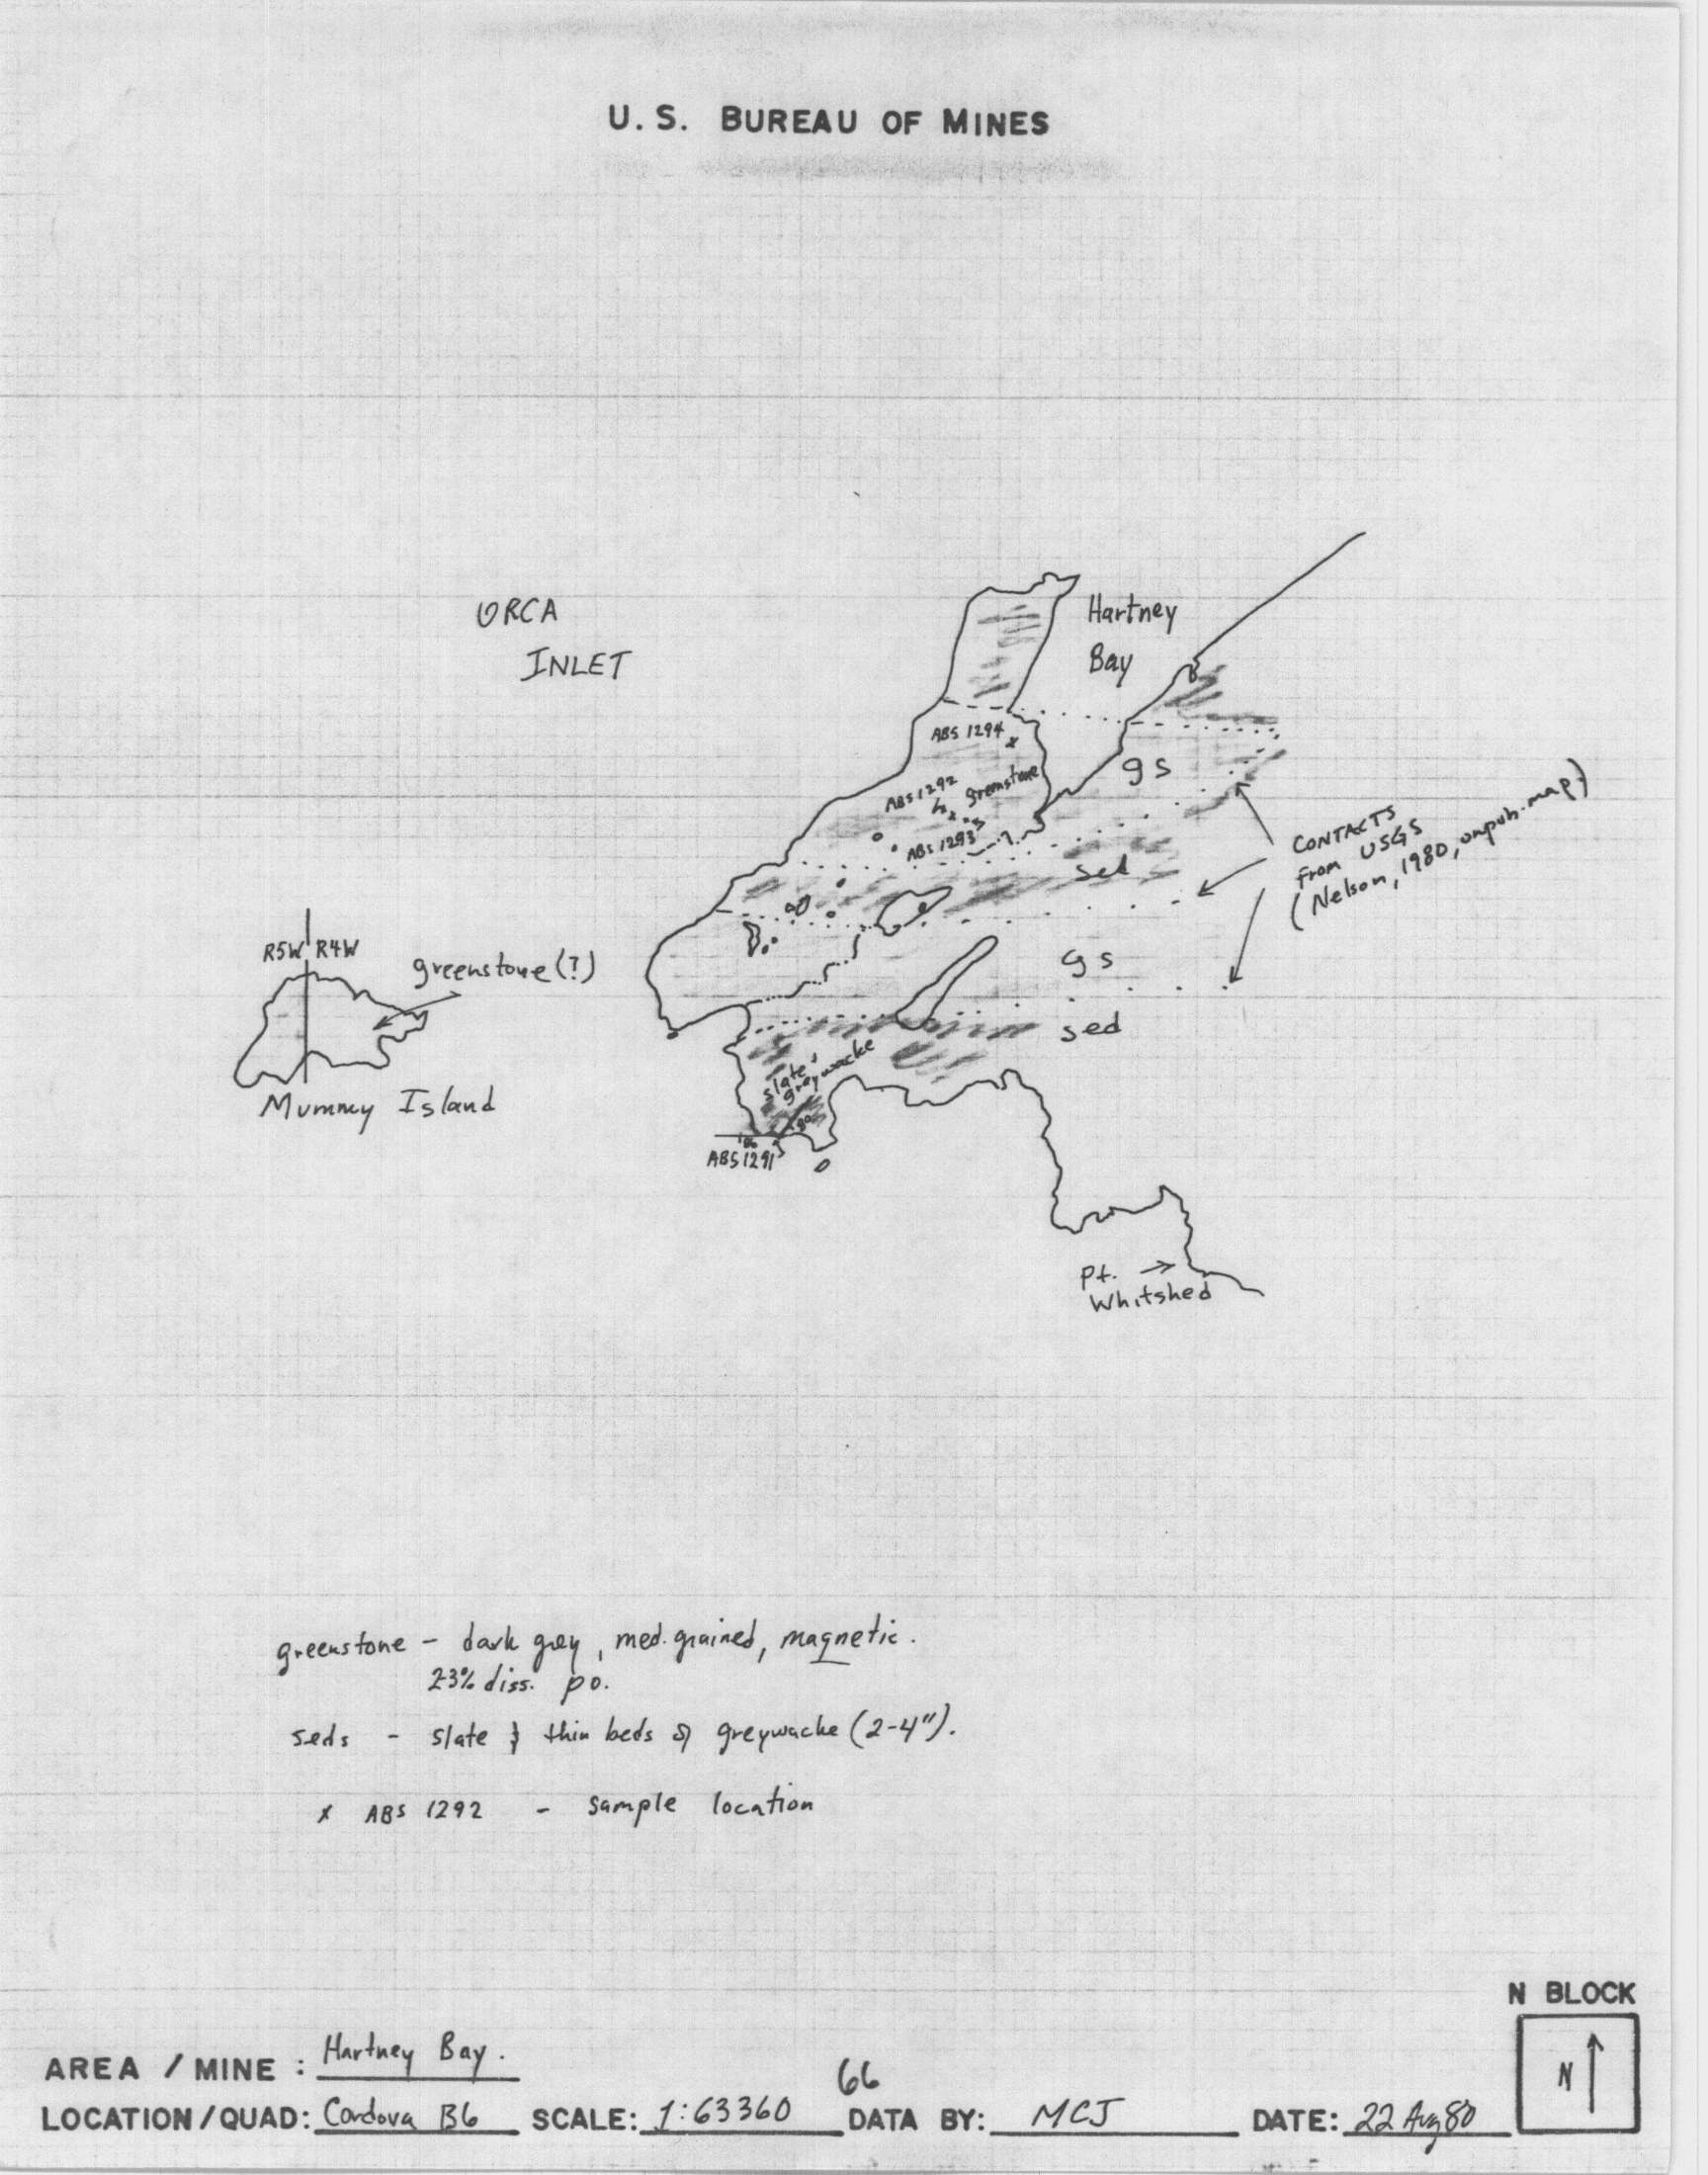 U.S. BUREAU OF MINES
ORCA
INLET
Hartney
Bay
ABS 1294
x
gs
ABS 1292
greenstone
ABS 1293
sed
CONTACTS
from USGS
(Nelson, 1980, unpub. map)
R5W R4W
greenstone (?)
gs
sed
Mummy Island
slate &
greywacke
80
ABS 1291
Pt.
Whitshed
greenstone - dark grey, med. grained, magnetic.
23% diss. po.
seds - slate & thin beds of greywacke (2-4").
x ABS 1292 - sample location
N BLOCK
N
AREA / MINE: Hartney Bay.
66
LOCATION/QUAD: Cordova B6 SCALE: 1:63360 DATA BY: MCJ DATE: 22 Aug 80